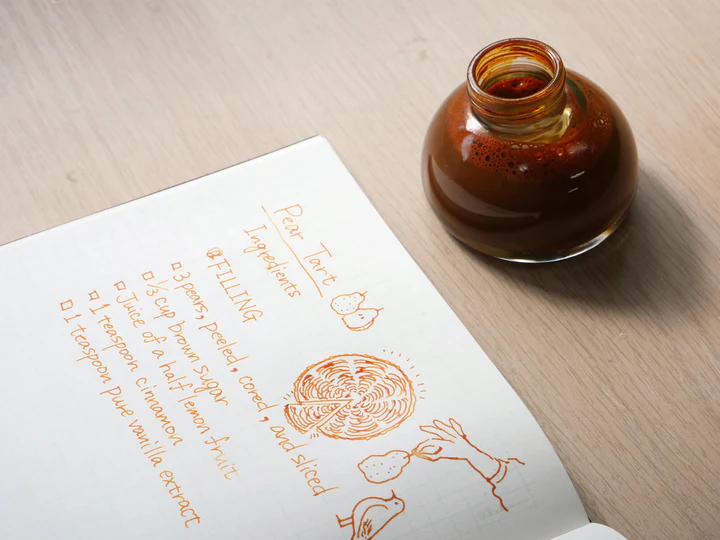 Pear Tart
Ingredients
FILLING
3 pears, peeled, cored, and sliced
1/3 cup brown sugar
Juice of a half lemon fruit
1 teaspoon cinnamon
1 teaspoon pure vanilla extract